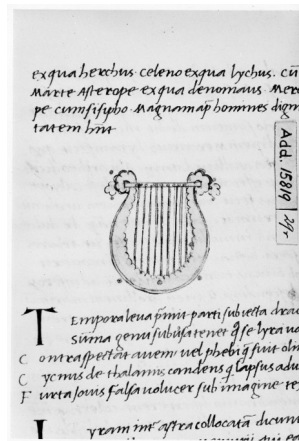 ex qua herchus. celeno ex qua lychus. cū
Marte Asterope ex qua denomaus. Mer
pe cum sisipho. Magnam ap̄ homines dign
tatem hnt
Add. 15819
29r
Temporaleua p̄mit parti subiecta drac
Súma genu subnisa tenet q̄ se lyra uo
Contra spectat auem uel phebi q̄ fuit olim
Cycnus de thalamis candens q̄ lapsus adu
Furta Iouis falsa uolucer sub imagine te
Lyram int̄ astra collocatā dicunt